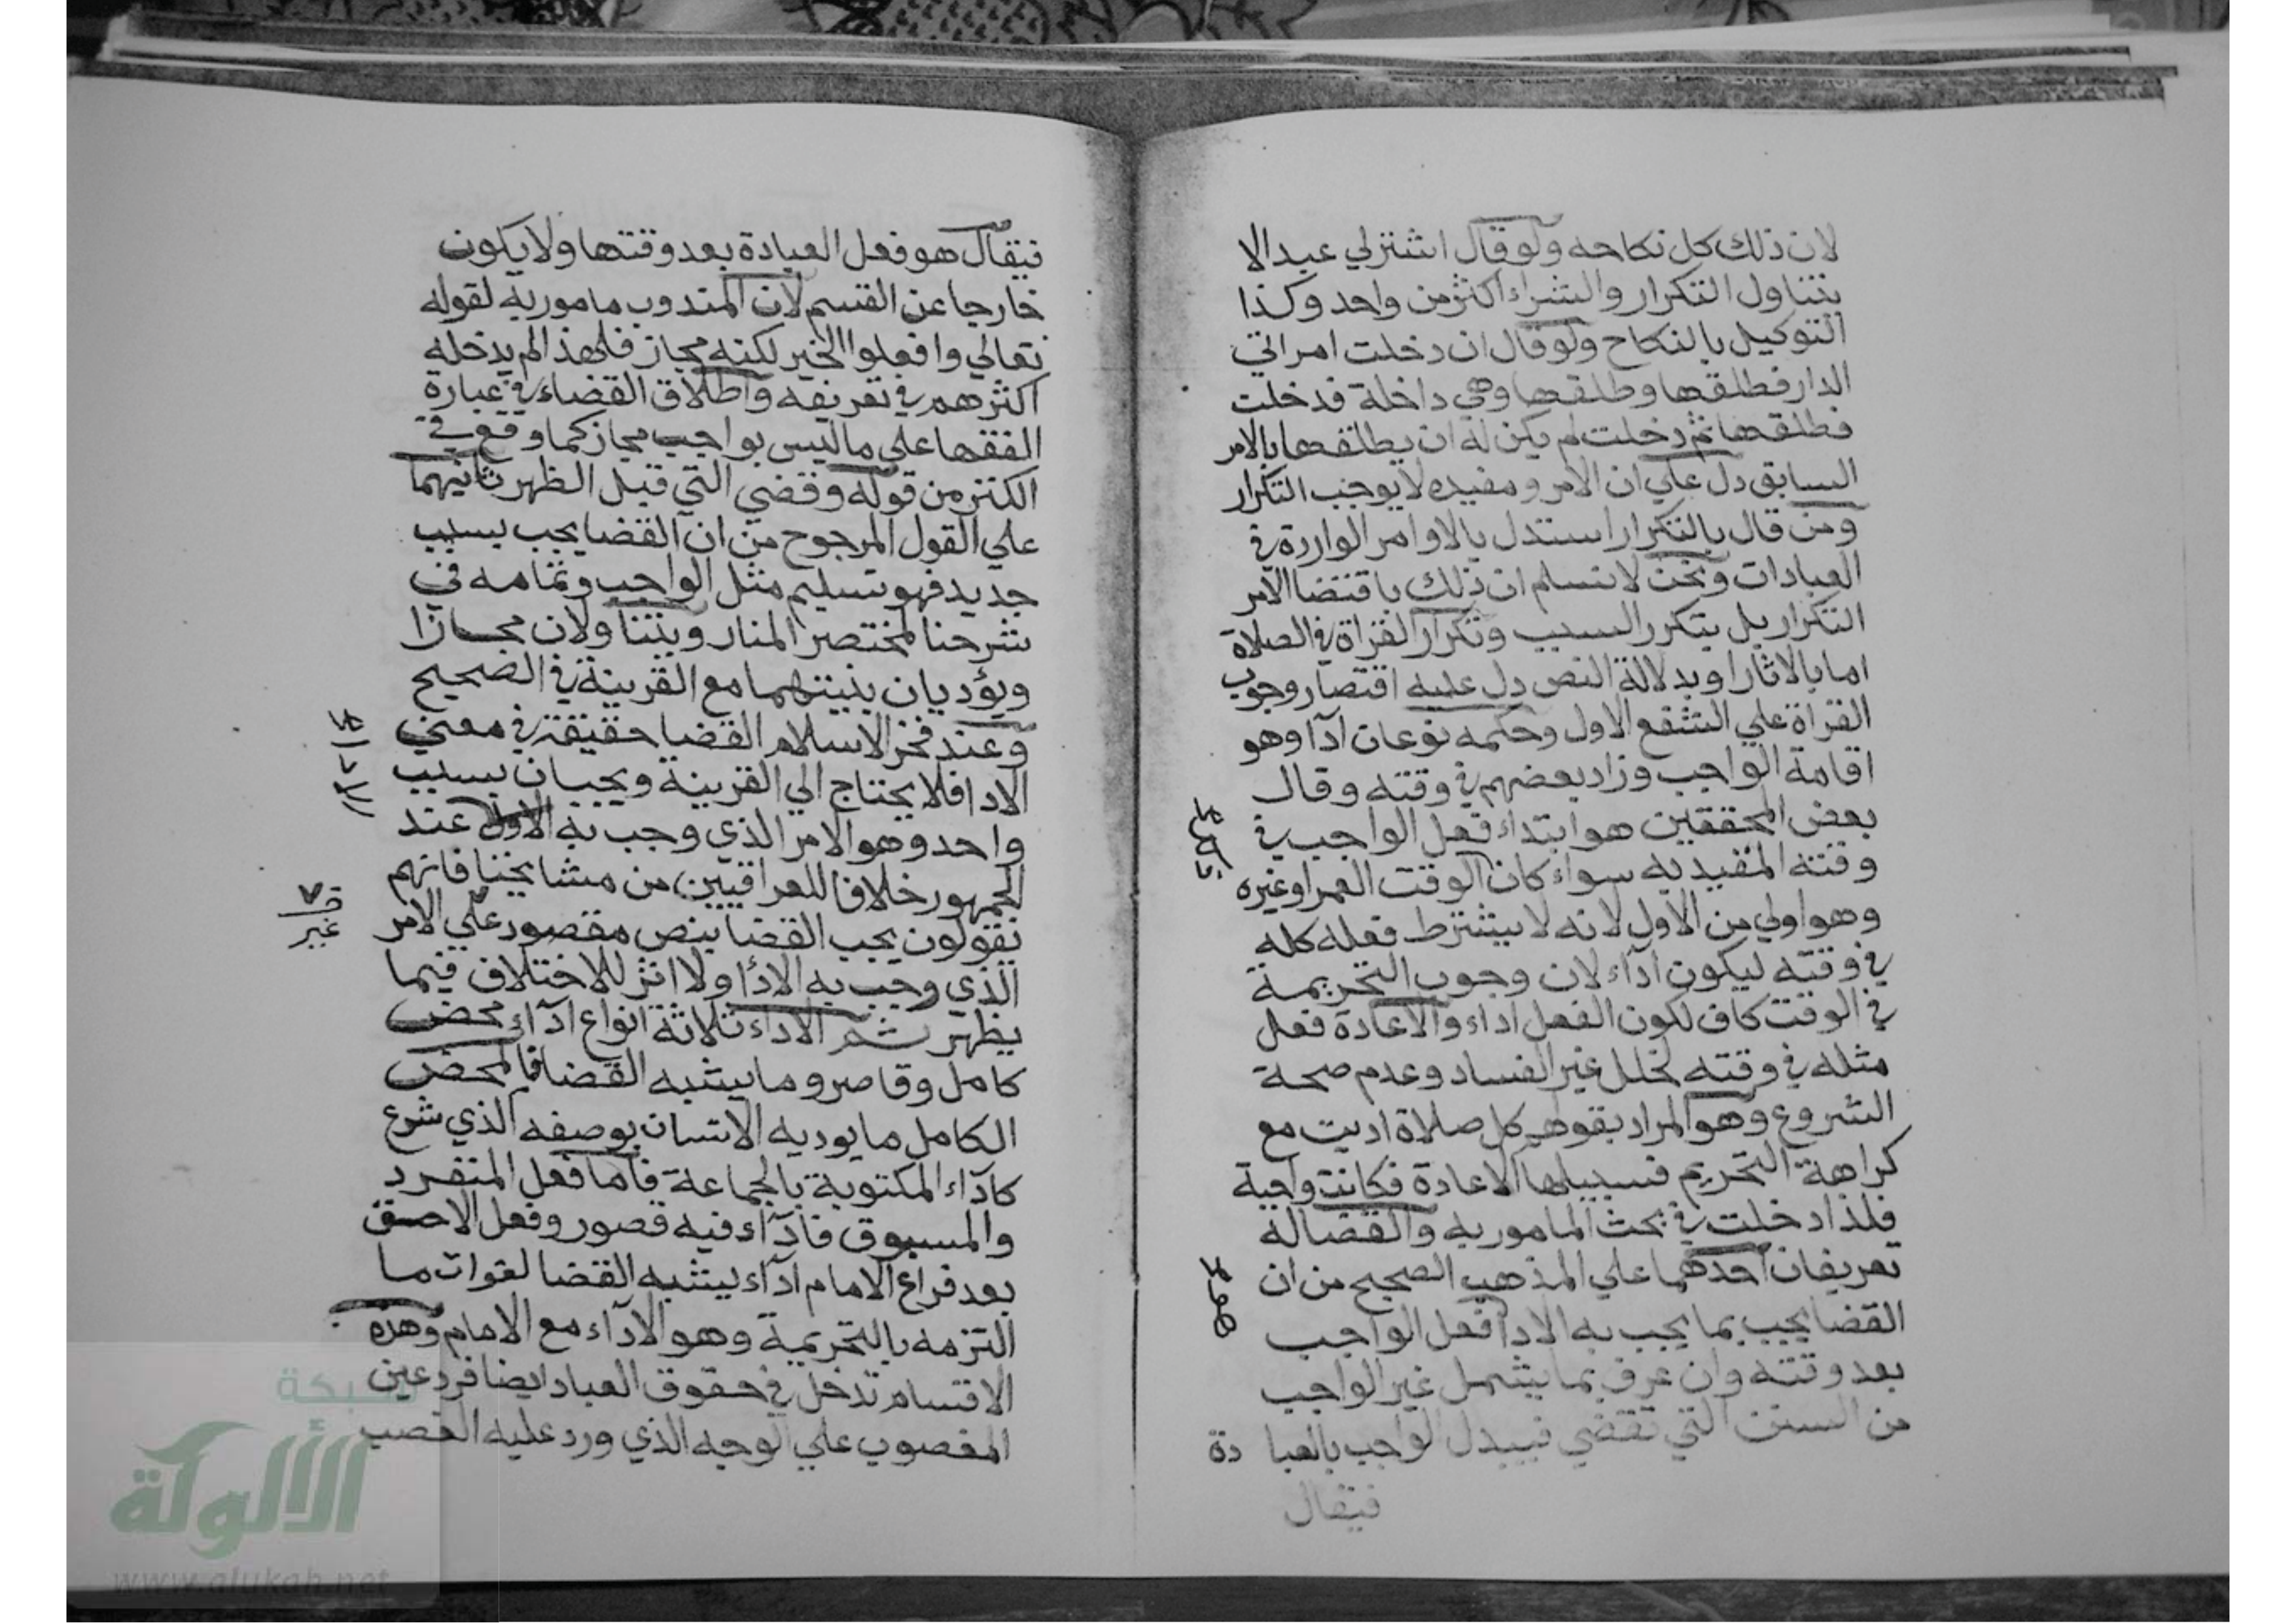 لان ذلك كل نكاحه ولو قال اشتر لي عبدا لا
يتناول التكرار والشراء اكثر من واحد وكذا
التوكيل بالنكاح ولو قال ان دخلت امراتي
الدار فطلقها وطلقها وهي داخلة فدخلت
فطلقها ثم دخلت لم يكن له ان يطلقها بالامر
السابق دل علي ان الامر ومفيده لا يوجب التكرار
ومن قال بالتكرار استدل بالاوامر الواردة في
العبادات ونحن لا نسلم ان ذلك باقتضا الامر
التكرار بل بتكرر السبب وتكرار القراة في الصلاة
اما بالاثار او بدلالة النص دل عليه اقتصار وجوب
القراة علي الشفع الاول وحكمه نوعان ادآ وهو
اقامة الواجب وزاد بعضهم في وقته وقال
بعض المحققين هو ابتداء فعل الواجب في
وقته المقيد به سواء كان الوقت العمر او غيره
وهو اولي من الاول لانه لا يشترط فعله كله
في وقته ليكون ادآء لان وجوب التحريمة
في الوقت كاف لكون الفعل اداء والاعادة فعل
مثله في وقته لخلل غير الفساد وعدم صحة
الشروع وهو المراد بقولهم كل صلاة اديت مع
كراهة التحريم فسبيلها الاعادة فكانت واجبة
فلذا دخلت في بحث المامور به والقضا له
تعريفان احدهما علي المذهب الصحيح من ان
القضا يجب بما يجب به الادا فعل الواجب
بعد وقته وان عرف بما يشمل غير الواجب
من السنن التي تقضي فيبدل الواجب بالعبا دة
فيقال
فيقال هو فعل العبادة بعد وقتها ولا يكون
خارجا عن القسم لان المندوب مامور به لقوله
تعالي وافعلوا الخير لكنه مجاز فلهذا لم يدخله
اكثرهم في تعريفه واطلاق القضاء في عبارة
الفقها علي ما ليس بواجب مجاز كما وقع في
الكنز من قوله وقضي التي قبل الظهر ثانيهما
علي القول المرجوح من ان القضا يجب بسبب
جديد فهو تسليم مثل الواجب وتمامه في
شرحنا لمختصر المنار ويتنا ولان مجازا
ويؤديان بنيتهما مع القرينة في الصحيح
وعند فخر الاسلام القضا حقيقة في معني
الادا فلا يحتاج الي القرينة ويجبان بسبب
واحد وهو الامر الذي وجب به الاول عند
الجمهور خلافا للعراقيين من مشايخنا فانهم
يقولون يجب القضا بنص مقصود علي الامر
غير
الذي وجب به الادا ولا اثر للاختلاف فيما
يظهر ثم الاداء ثلاثة انواع ادآء محض
كامل وقاصر وما يشبه القضا فالمحض
الكامل ما يوديه الانسان بوصفه الذي شرع
كادآء المكتوبة بالجماعة فاما فعل المنفرد
والمسبوق فادآء فيه قصور وفعل اللاحق
بعد فراغ الامام ادآء يشبه القضا لفوات ما
التزمه بالتحريمة وهو الادآء مع الامام وهذه
الاقسام تدخل في حقوق العباد ايضا فرد عين
المغصوب علي الوجه الذي ورد عليه الغصب
شبكة
الألوكة
www.alukah.net